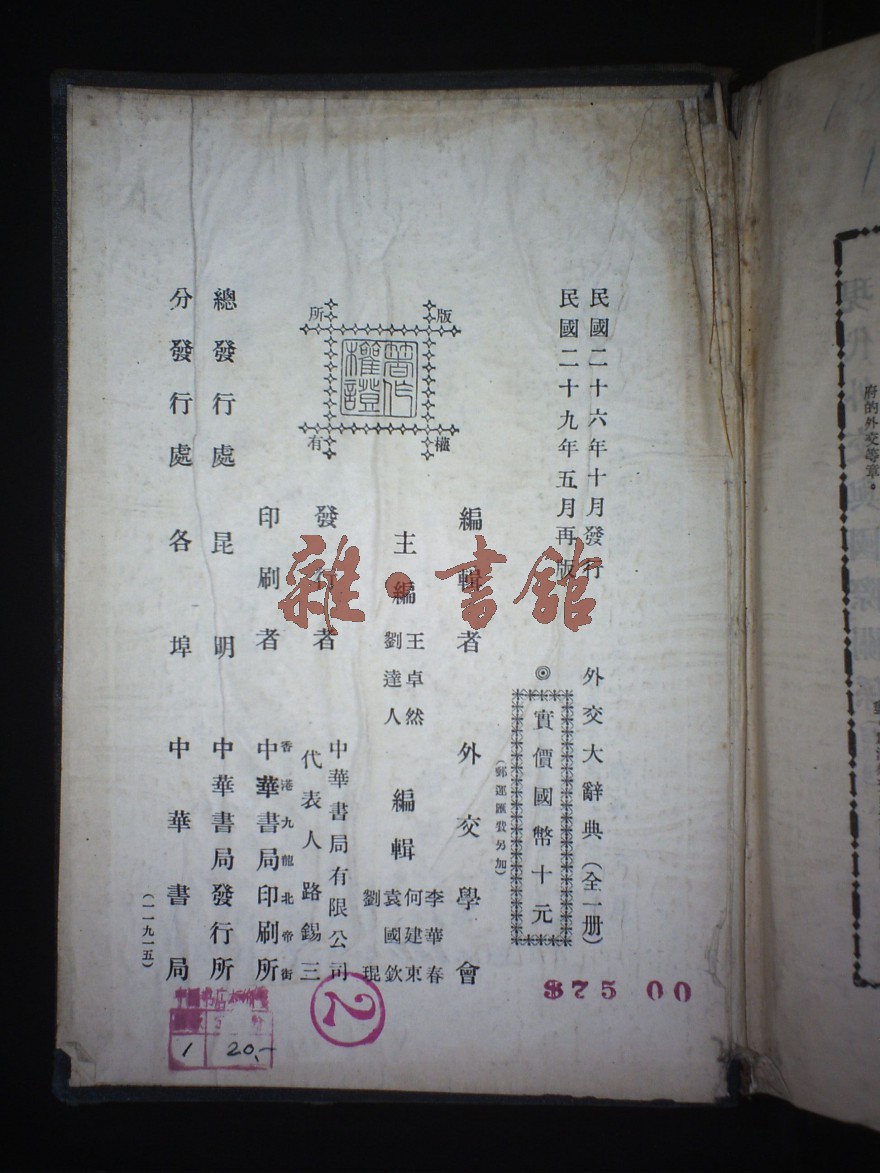 民國二十六年十月發行
民國二十九年五月再版
外交大辭典（全一册）
◎實價國幣十元
（郵運匯費另加）
版權所有
著作權證
編輯者 外交學會
主編 王卓然 劉達人
編輯 李華春 何建東 袁國欽 劉琨
發行者 中華書局有限公司
代表人 路錫三
印刷者 香港九龍北帝街
中華書局印刷所
總發行處 昆明 中華書局發行所
分發行處 各埠 中華書局
（一一九一五）
雜·書館
$75 00
2
1 20.-
府的外交等章。